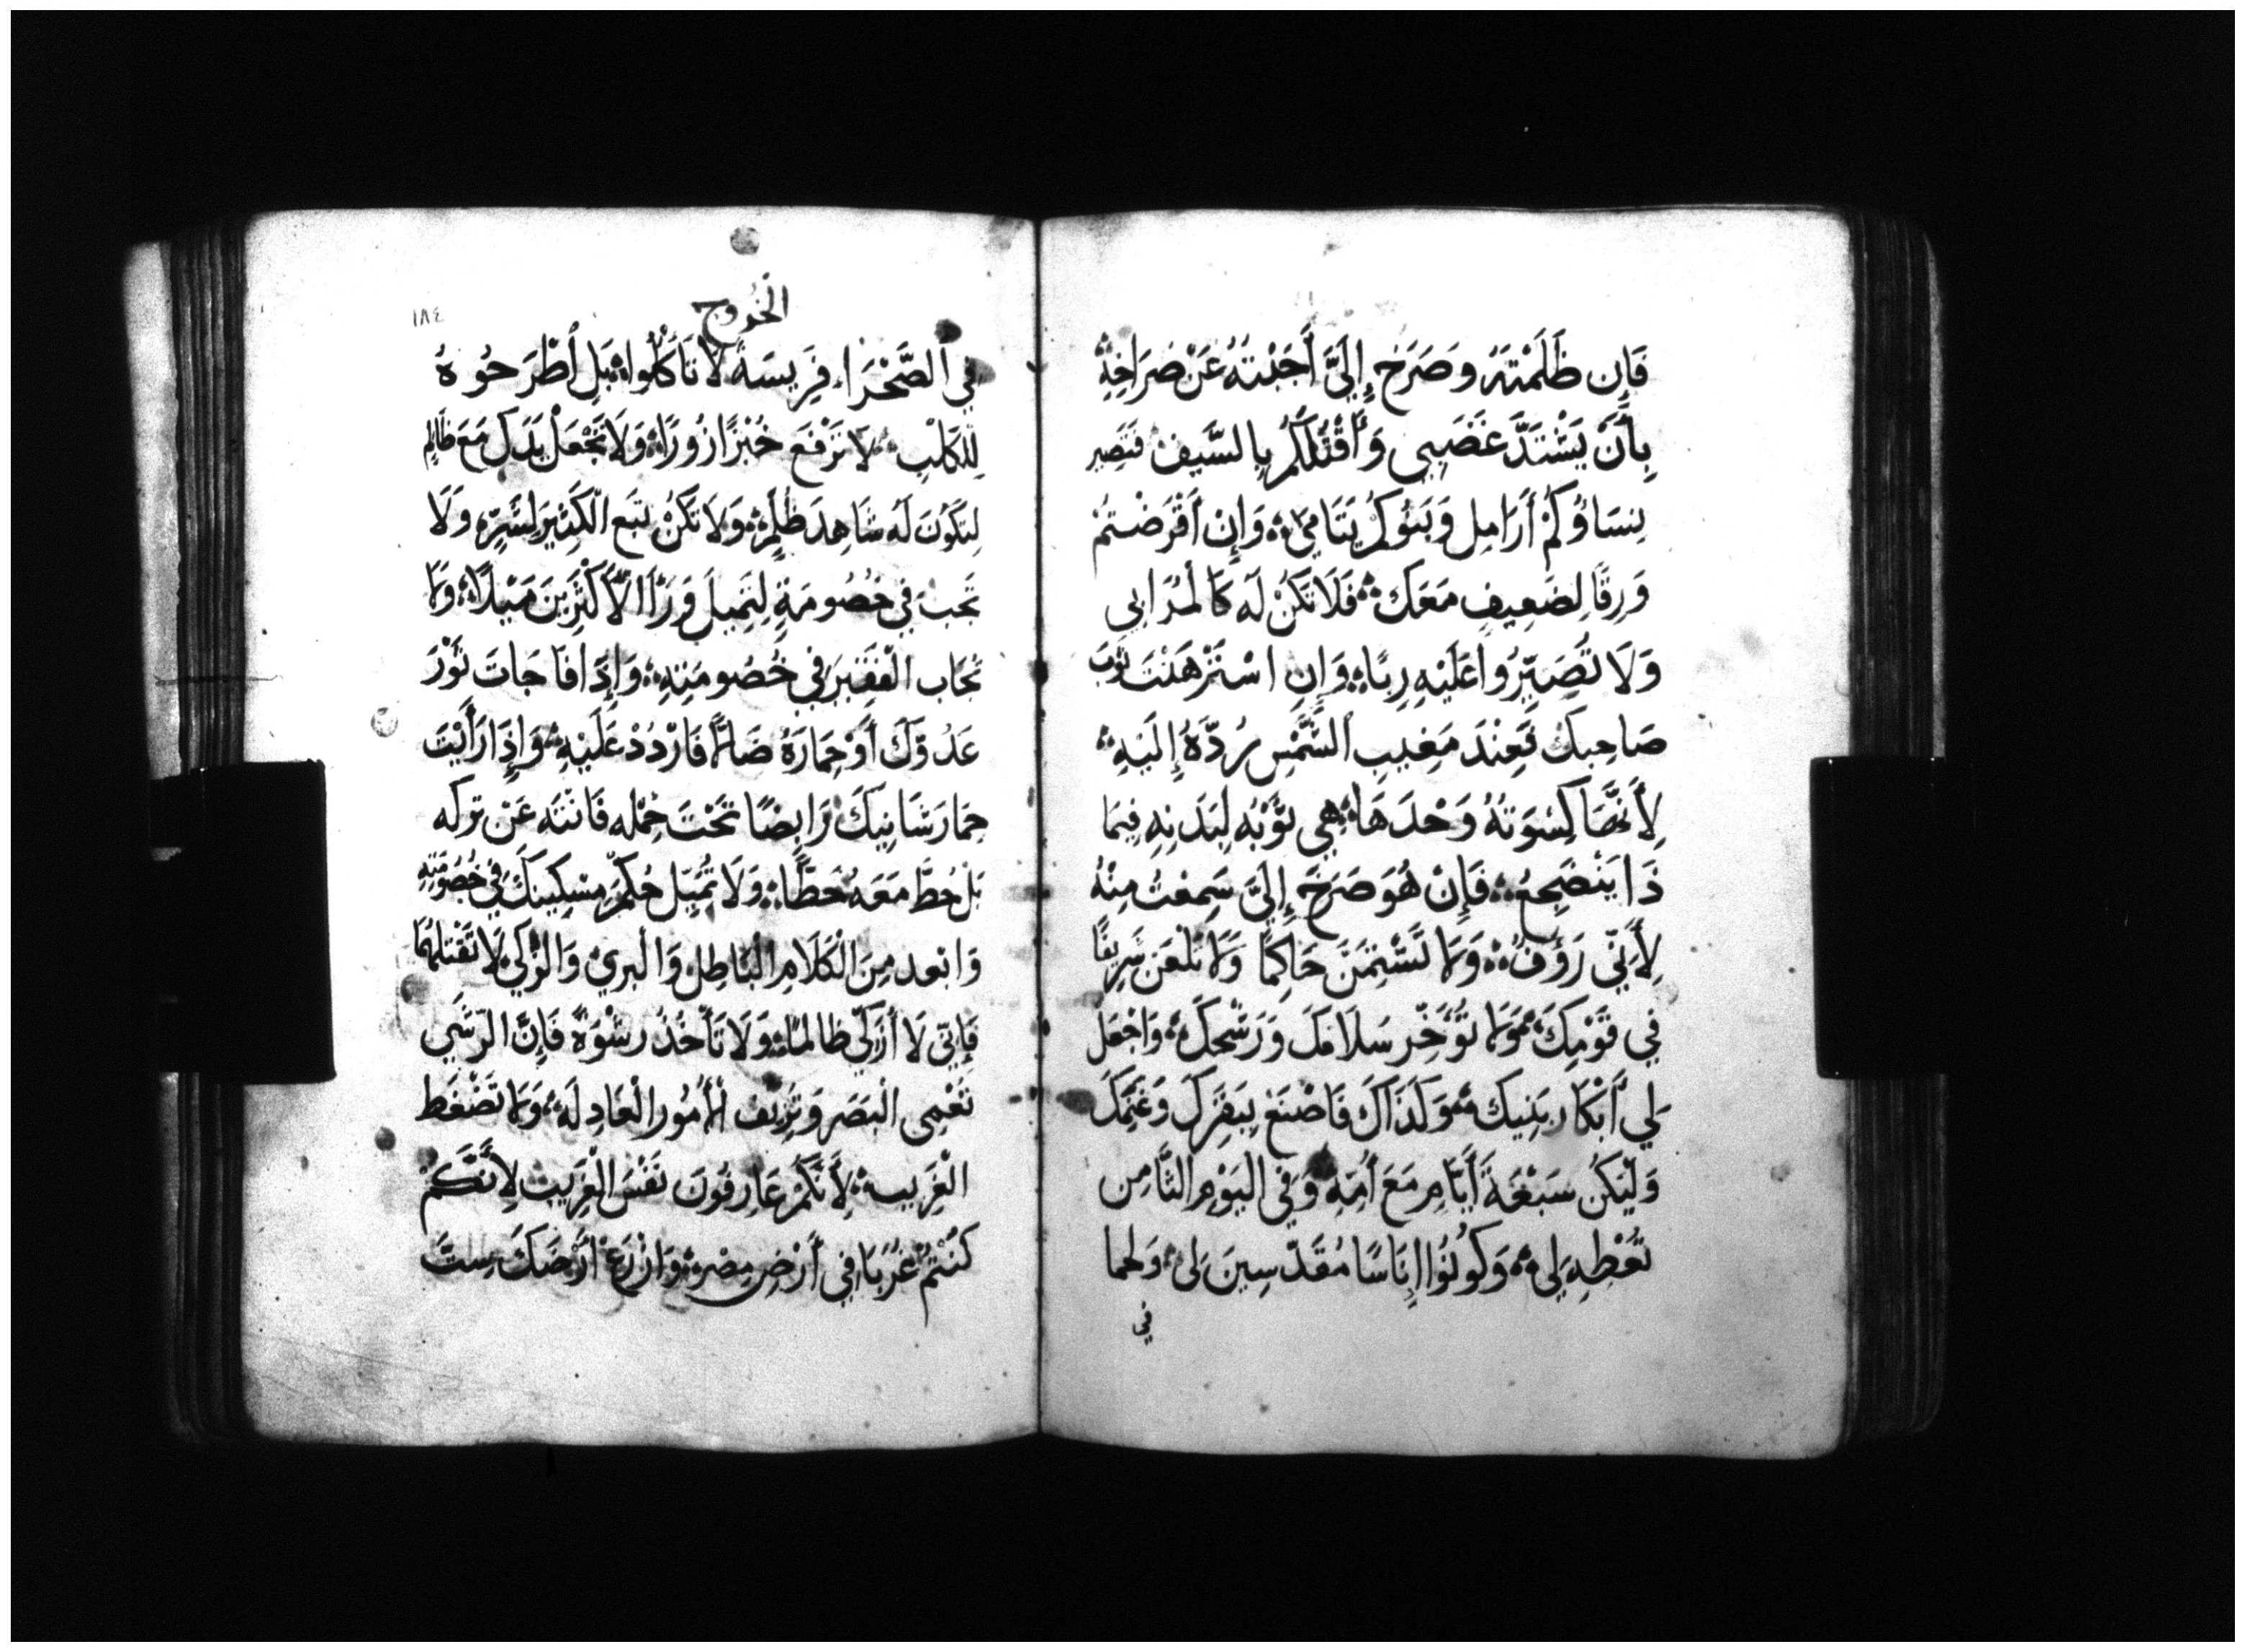 فَإِن ظَلَمْتَهُ وَصَرَخَ إِلَيَّ أَجَبْتَهُ عَنْ صَرَاخِهِ
بِأَنْ يَشْتَدَّ غَضَبِي وَأَقْتُلَكُمْ بِالسَّيفِ فَتَصِير
نِسَاؤُكُمْ أَرَامِل وَبَنُوكُمْ يَتَامَى وَإِنْ أَقْرَضْتُمْ
وَرِقًا لِضَعِيفٍ مَعَكَ فَلَا تَكُنْ لَه كَالمُرَابِي
وَلَا تُصَيِّرُوا عَلَيْهِ رِبًا وَإِنِ اسْتَرْهَنْتَ ثَوْبَ
صَاحِبكَ فَعِنْدَ مَغِيبِ الشَّمْسِ رُدَّهُ إِلَيْهِ
لِأَنَّهَا كِسْوَتَهُ وَحْدَهَا هِي ثَوْبُه لِبَدَنِهِ فِيمَا
ذَا يَنْضَجِعُ فَإِنْ هُوَ صَرَخَ إِلَيَّ سَمِعْتُ مِنْهُ
لِأَنِّي رَؤُفٌ وَلَا تَشْتِمَنَّ حَاكِمًا وَلَا تَلْعَن شَرِيفًا
فِي قَوْمِكَ وَلَا تُؤَخِّر سَلَافَكَ وَرَشْحَكَ وَاجْعَل
لِي أَبْكَار بَنِيكَ وَكَذَاكَ فَاصْنَعْ بِبَقَرِكَ وَغَنَمِكَ
وَلْيَكُن سَبْعَةَ أَيَّامٍ مَعَ أُمِّهِ وَفِي الْيَوْمِ الثَّامِن
تُعْطِهِ لِي وَكُونُوا إِنَاسًا مُقَدَّسِينَ لِي وَلحما
في
الخُرُوج
١٨٤
فِي الصَّحْرَاء فَرِيسَةً لَا تَأْكُلُوا بَلِ أطْرَحُوهُ
لِلْكَلْبِ لَا تَرْفَع خُبْزًا زُورًا وَلَا تَجْعَلْ يَدَكَ مَعَ ظَالِمٍ
لِتَكُونَ لَهُ شَاهِدَ ظُلْمٍ وَلَا تَكُنْ تَبَعَ الْكَثِيرَ لِشَرٍّ وَلَا
تُجَبْ فِي خُصُومَةٍ لِتَمِيلَ وَرَاءَ الْأَكْثَرِينَ مَيْلًا وَلَا
تُحَاب الْفَقِيرَ فِي خُصُومَتِهِ وَإِذَا فَاجَأتَ ثَوْرَ
عَدُوِّكَ أَوْ حِمَارَهُ ضَالًّا فَارْدُدْ عَلَيْهِ وَإِذَا رَأَيْتَ
حِمَارَ شَانِيكَ رَابِضًا تَحْتَ حِمْلِه فَانْتَه عَنْ تركه
بَلْ حُطَّ مَعَهُ حَطًّا وَلَا تُمِيل حُكْمَ مِسْكِينكَ فِي خُصُومَتِهِ
وَابعد مِنَ الْكَلَامِ الْبَاطِل وَالْبَرِيء وَالزَّكِي لَا تَقْتُلهُمَا
فَإِنِّي لَا أُزَكِّي ظَالمًا وَلَا تَأْخُذْ رِشْوَةً فَإِنَّ الرُّشَي
تُعْمِي الْبَصَرَ وَتُزَيِّف الْأُمُورَ الْعَادِلَه وَلَا تَضْغَط
الْغَرِيب لِأَنَّكُمْ عَارِفُونَ نَفْسَ الْغَرِيب لِأَنَّكُمْ
كُنْتُمْ غُرَبَا فِي أَرْضِ مِصْر وَازْرَعْ أَرْضَكَ سِتَّ